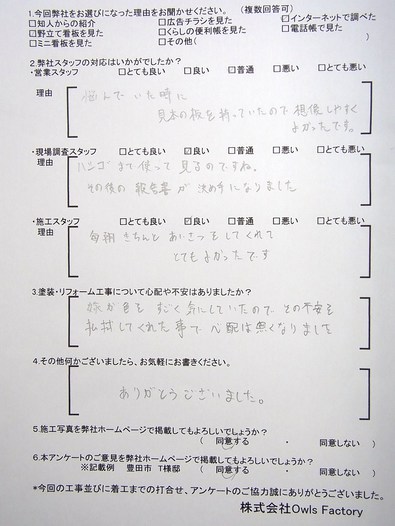 1.今回弊社をお選びになった理由をお聞かせください。 (複数回答可)
□知人からの紹介 □広告チラシを見た □インターネットで調べた
□野立て看板を見た □くらしの便利帳を見た □電話帳で見た
□ミニ看板を見た □その他( )
2.弊社スタッフの対応はいかがでしたか?
・営業スタッフ □とても良い □良い □普通 □悪い □とても悪い
理由
悩んでいた時に
見本の板を持っていたので想像しやすく
よかったです。
・現場調査スタッフ □とても良い ☑良い □普通 □悪い □とても悪い
理由
ハシゴまで使って見るのですね。
その後の報告書が決め手になりました
・施工スタッフ □とても良い ☑良い □普通 □悪い □とても悪い
理由
毎朝きちんとあいさつをしてくれて
とてもよかったです
3.塗装・リフォーム工事について心配や不安はありましたか?
色をすごく気にしていたのでその不安を
してくれた事で心配は無くなりました
4.その他何かございましたら、お気軽にお書きください。
ありがとうございました。
5.施工写真を弊社ホームページで掲載してもよろしいでしょうか?
( 同意する ・ 同意しない )
6.本アンケートのご意見を弊社ホームページで掲載してもよろしいでしょうか?
※記載例 豊田市 T様邸 ( 同意する ・ 同意しない )
*今回の工事並びに着工までの打合せ、アンケートのご協力誠にありがとうございました。
株式会社Owls Factory